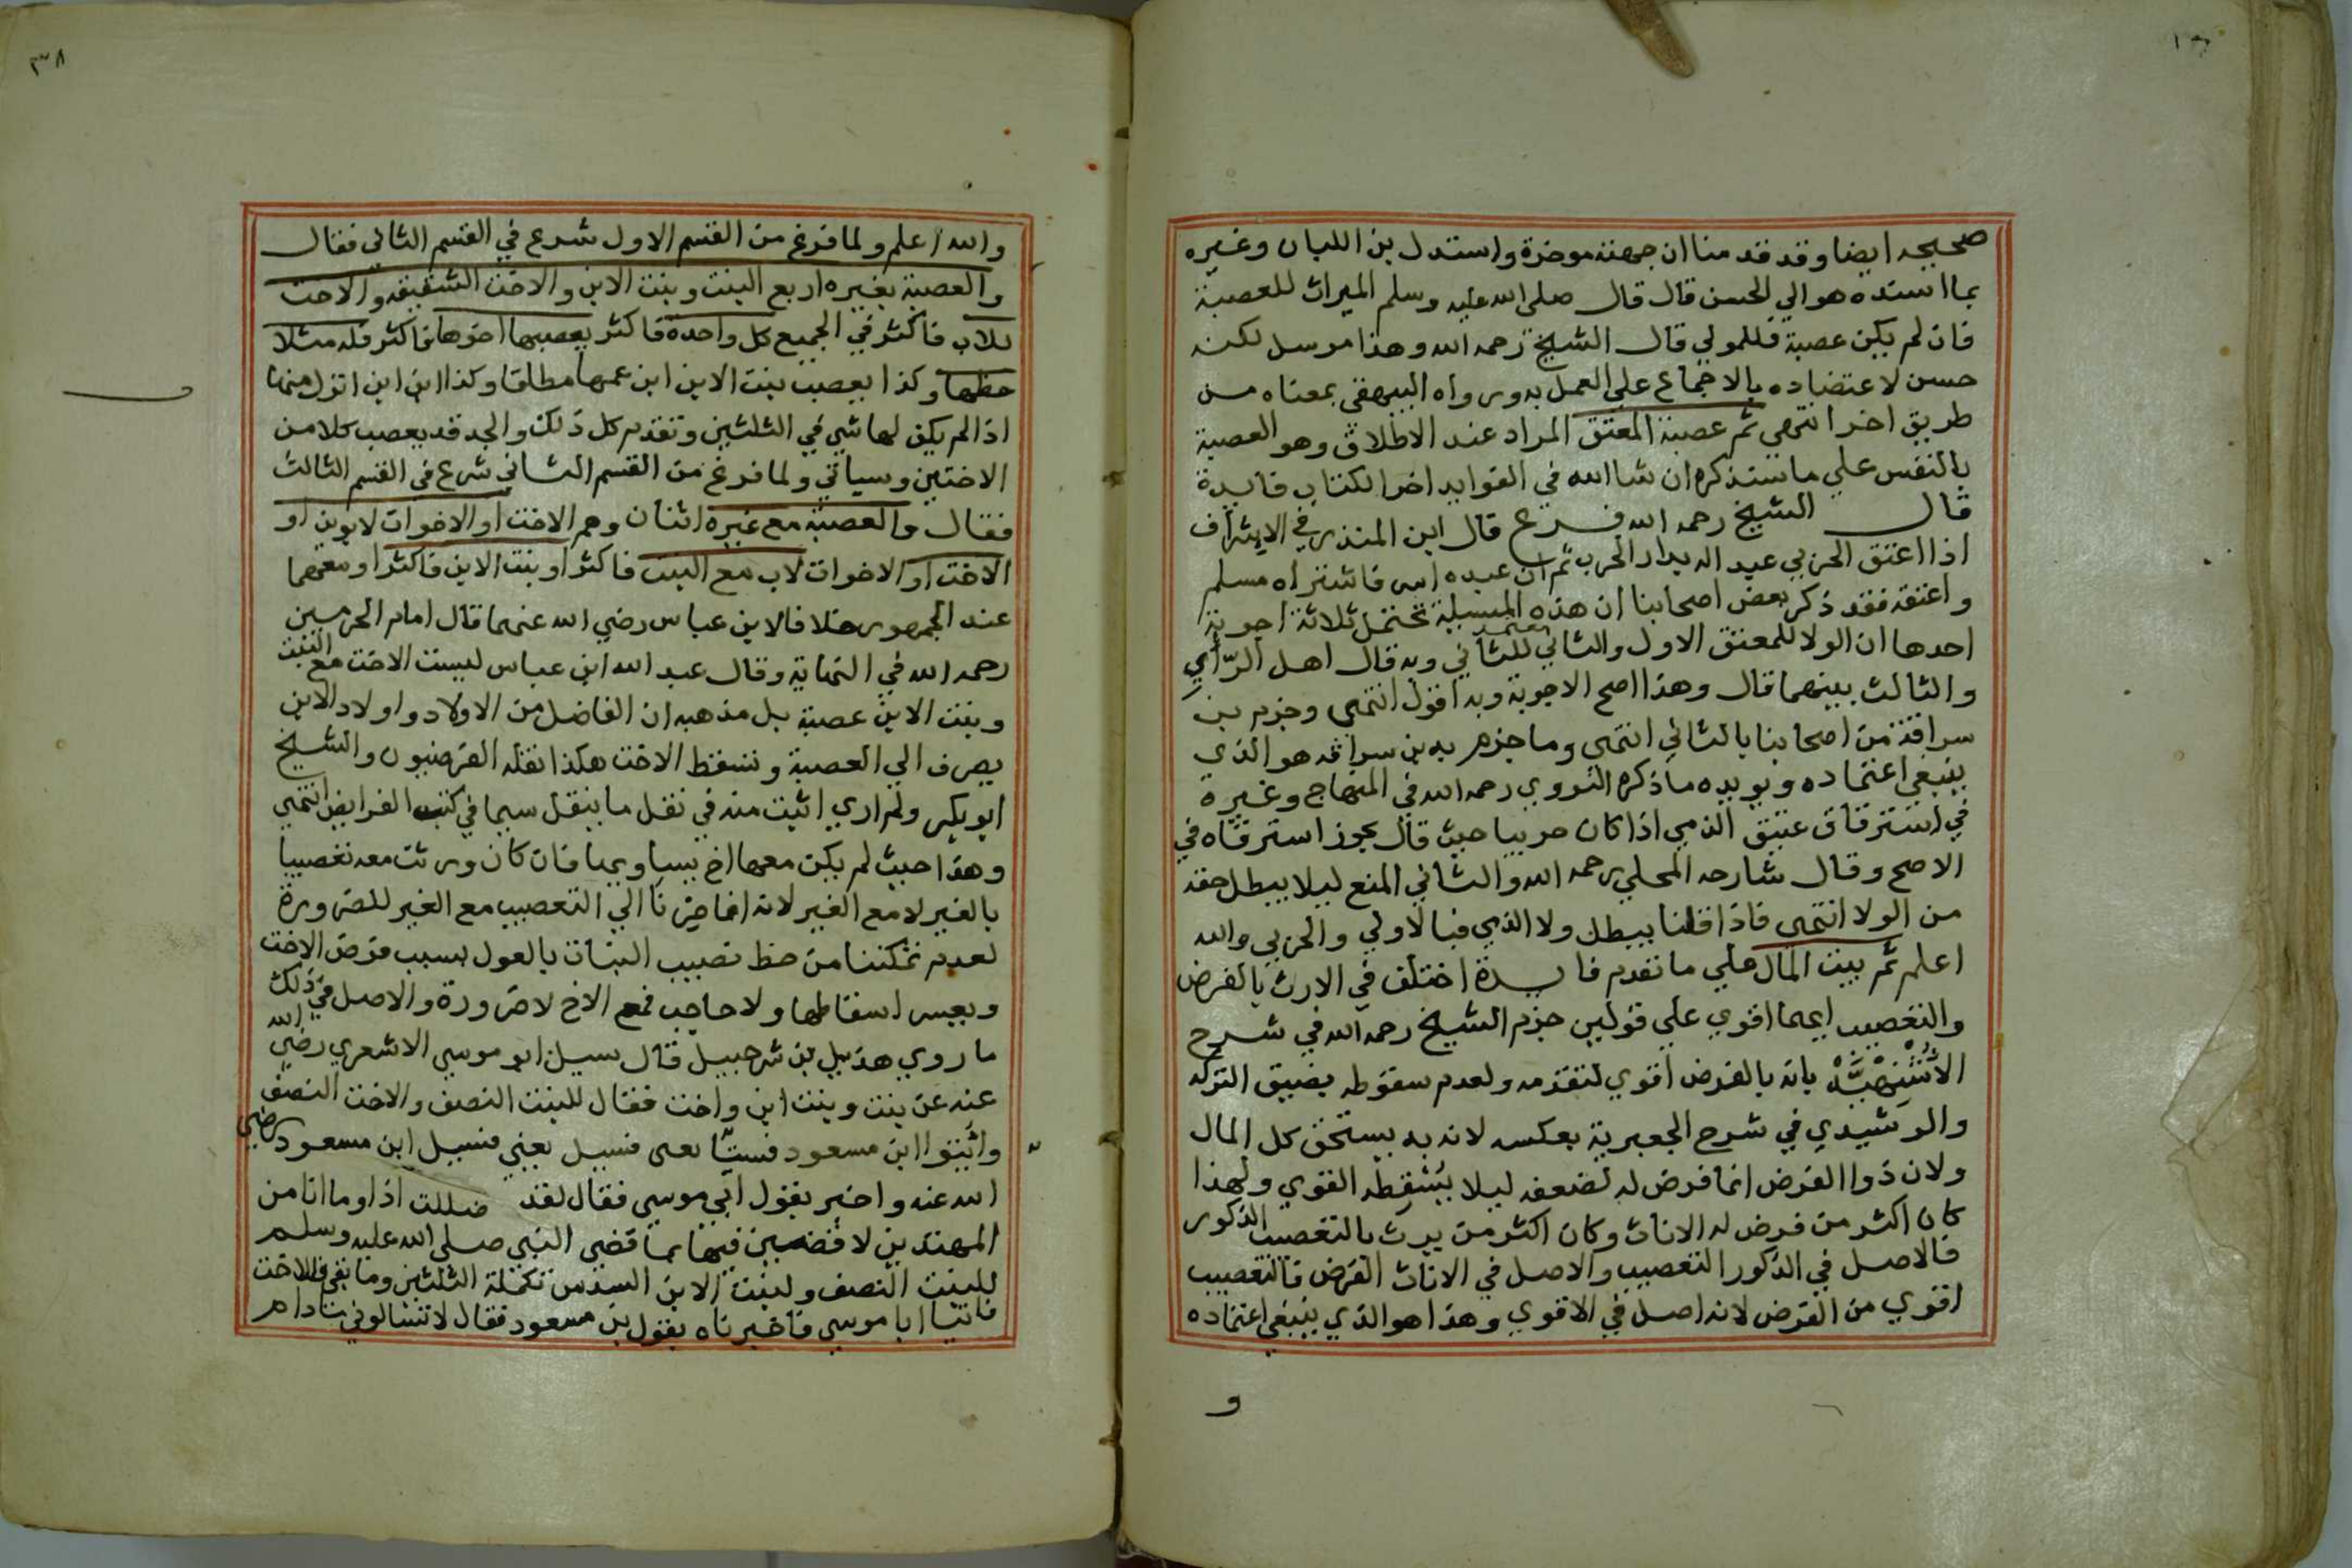 صحيحه ايضا وقد قدمنا ان جهته موخرة واستدل بن اللبان وغيره
بما اسنده هو الي الحسن قال قال صلى الله عليه وسلم الميراث للعصبة
فان لم يكن عصبة فللمولي قال الشيخ رحمه الله وهذا مرسل لكنه
حسن لاعتضاده بالاجماع علي العمل به ورواه البيهقي بمعناه من
طريق اخر انتهي ثم عصبة المعتق المراد عند الاطلاق وهو العصبة
بالنفس علي ما سنذكره ان شا الله في الفوايد اخر الكتاب فايدة
قال الشيخ رحمه الله فرع قال ابن المنذر في الاشراف
اذا اعتق الحربي عبد اله بدار الحرب ثم ان عبده اسر فاشتراه مسلم
واعتقه فقد ذكر بعض اصحابنا ان هذه المسيلة تحتمل ثلاثة اجوبة
احدها ان الولا للمعتق الاول والثاني للثاني وبه قال اهل الرأي
والثالث بينهما قال وهذا اصح الاجوبة وبه اقول انتهي وجزم بن
سراقة من اصحابنا بالثاني انتهي وما جزم به بن سراقه هو الذي
ينبغي اعتماده ويويده ما ذكره النووي رحمه الله في المنهاج وغيره
في استرقاق عتيق الذمي اذا كان حربيا حيث قال يجوز استرقاه في
الاصح وقال شارحه المحلي رحمه الله والثاني المنع ليلا يبطل حقه
من الولا انتهي فاذا قلنا يبطل ولا الذمي فبالاولي والحربي والله
اعلم ثم بيت المال علي ما تقدم فايدة اختلف في الارث بالفرض
والتعصيب ايهما اقوي علي قولين جزم الشيخ رحمه الله في شرح
الأشنهية بانه بالفرض اقوي لتقدمه ولعدم سقوطه بضيق التركه
والرشيدي في شرح الجعبرية بعكسه لانه به يستحق كل المال
ولان ذوا الفرض انما فرض له لضعفه ليلا يسقطه القوي ولهذا
كان اكثر من فرض له الاناث وكان اكثر من يرث بالتعصيب الذكور
فالاصل في الذكور التعصيب والاصل في الاناث الفرض فالتعصيب
اقوي من الفرض لانه اصل في الاقوي وهذا هو الذي ينبغي اعتماده
و
٣٨
والله اعلم ولما فرغ من القسم الاول شرع في القسم الثاني فقال
والعصبة بغيره اربع البنت وبنت الابن والاخت الشقيقه والاخت
للاب فاكثر في الجميع كل واحدة فاكثر يعصبها اخوها فاكثر فله مثلا
حظها وكذا يعصب بنت الابن ابن عمها مطلقا وكذا ابن ابن انزل منها
اذا لم يكن لها شي في الثلثين وتقدم كل ذلك والجد قد يعصب كلا من
الاختين وسياتي ولما فرغ من القسم الثاني شرع في القسم الثالث
فقال والعصبة مع غيره اثنان وهم الاخت او الاخوات لابوين او
الاخت او الاخوات لاب مع البنت فاكثر او بنت الابن فاكثر او معهما
عند الجمهور خلافا لابن عباس رضي الله عنهما قال امام الحرمين
رحمه الله في النهاية وقال عبد الله ابن عباس ليست الاخت مع البنت
وبنت الابن عصبة بل مذهبه ان الفاضل من الاولاد واولاد الابن
يصرف الي العصبة وتسقط الاخت هكذا نقله الفرضيون والشيخ
ابو بكر ولم اري اثبت منه في نقل ما ينقل سيما في كتب الفرايض انتهي
وهذا حيث لم يكن معها اخ يساويها فان كان ورثت معه تعصيبا
بالغير لا مع الغير لانه انما صرنا الي التعصيب مع الغير للضرورة
لعدم تمكننا من حظ نصيب البنات بالعول بسبب فرض الاخت
وبعسر اسقاطها ولا حاجب فمع الاخ لا ضرورة والاصل في ذلك
ما روي هذيل بن شرحبيل قال سيل ابو موسي الاشعري رضي الله
عنه عن بنت وبنت ابن واخت فقال للبنت النصف والاخت النصف
وائتوا ابن مسعود فسيل يعني فسيل ابن مسعود رضي
الله عنه واخبر بقول ابي موسي فقال لقد ضللت اذا وما انا من
المهتدين لاقضين فيها بما قضي النبي صلى الله عليه وسلم
للبنت النصف ولبنت الابن السدس تكملة الثلثين وما بقي فللاخت
فاتيا ابا موسي فاخبرناه بقول بن مسعود فقال لا تسالوني ما دام